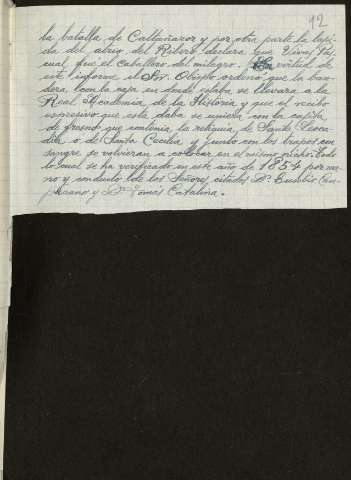 12
la batalla de Caltañazor y por otra parte la lapi-
da del atrio del Ribero declara que Vivas Pas-
cual fue el caballero del milagro. En virtud de
este informe el Sr. Obispo ordenó que la ban-
dera con la caja en donde estaba se llevara a la
Real Academia de la Historia y que el recibo
espresivo que esta daba se uniera con la cajita
de fresno que contenia la reliquia de Santa Leoca-
dia o de Santa Cecilia y junto con los trapos con
sangre se volvieran a colocar en el mismo nicho. Todo
lo cual se ha verificado en este año de 1854 por ma-
no y conducto de los Señores citados Dn. Eusebio Cam-
puzano y Dn. Tomás Catalina.